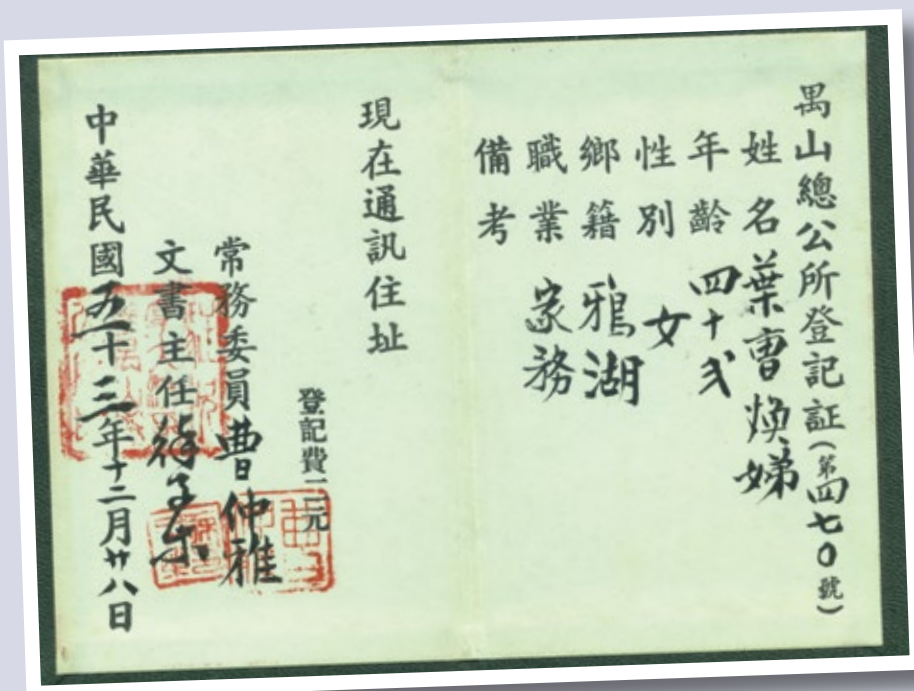 禺山總公所登記証(第四七0號)
姓名葉曹煥娣
年齡四十弍
性別女
鄉籍鴉湖
職業家務
備考
現在通訊住址
登記費二元
常務委員曹仲雅
文書主任
中華民國五十三年十二月廿八日